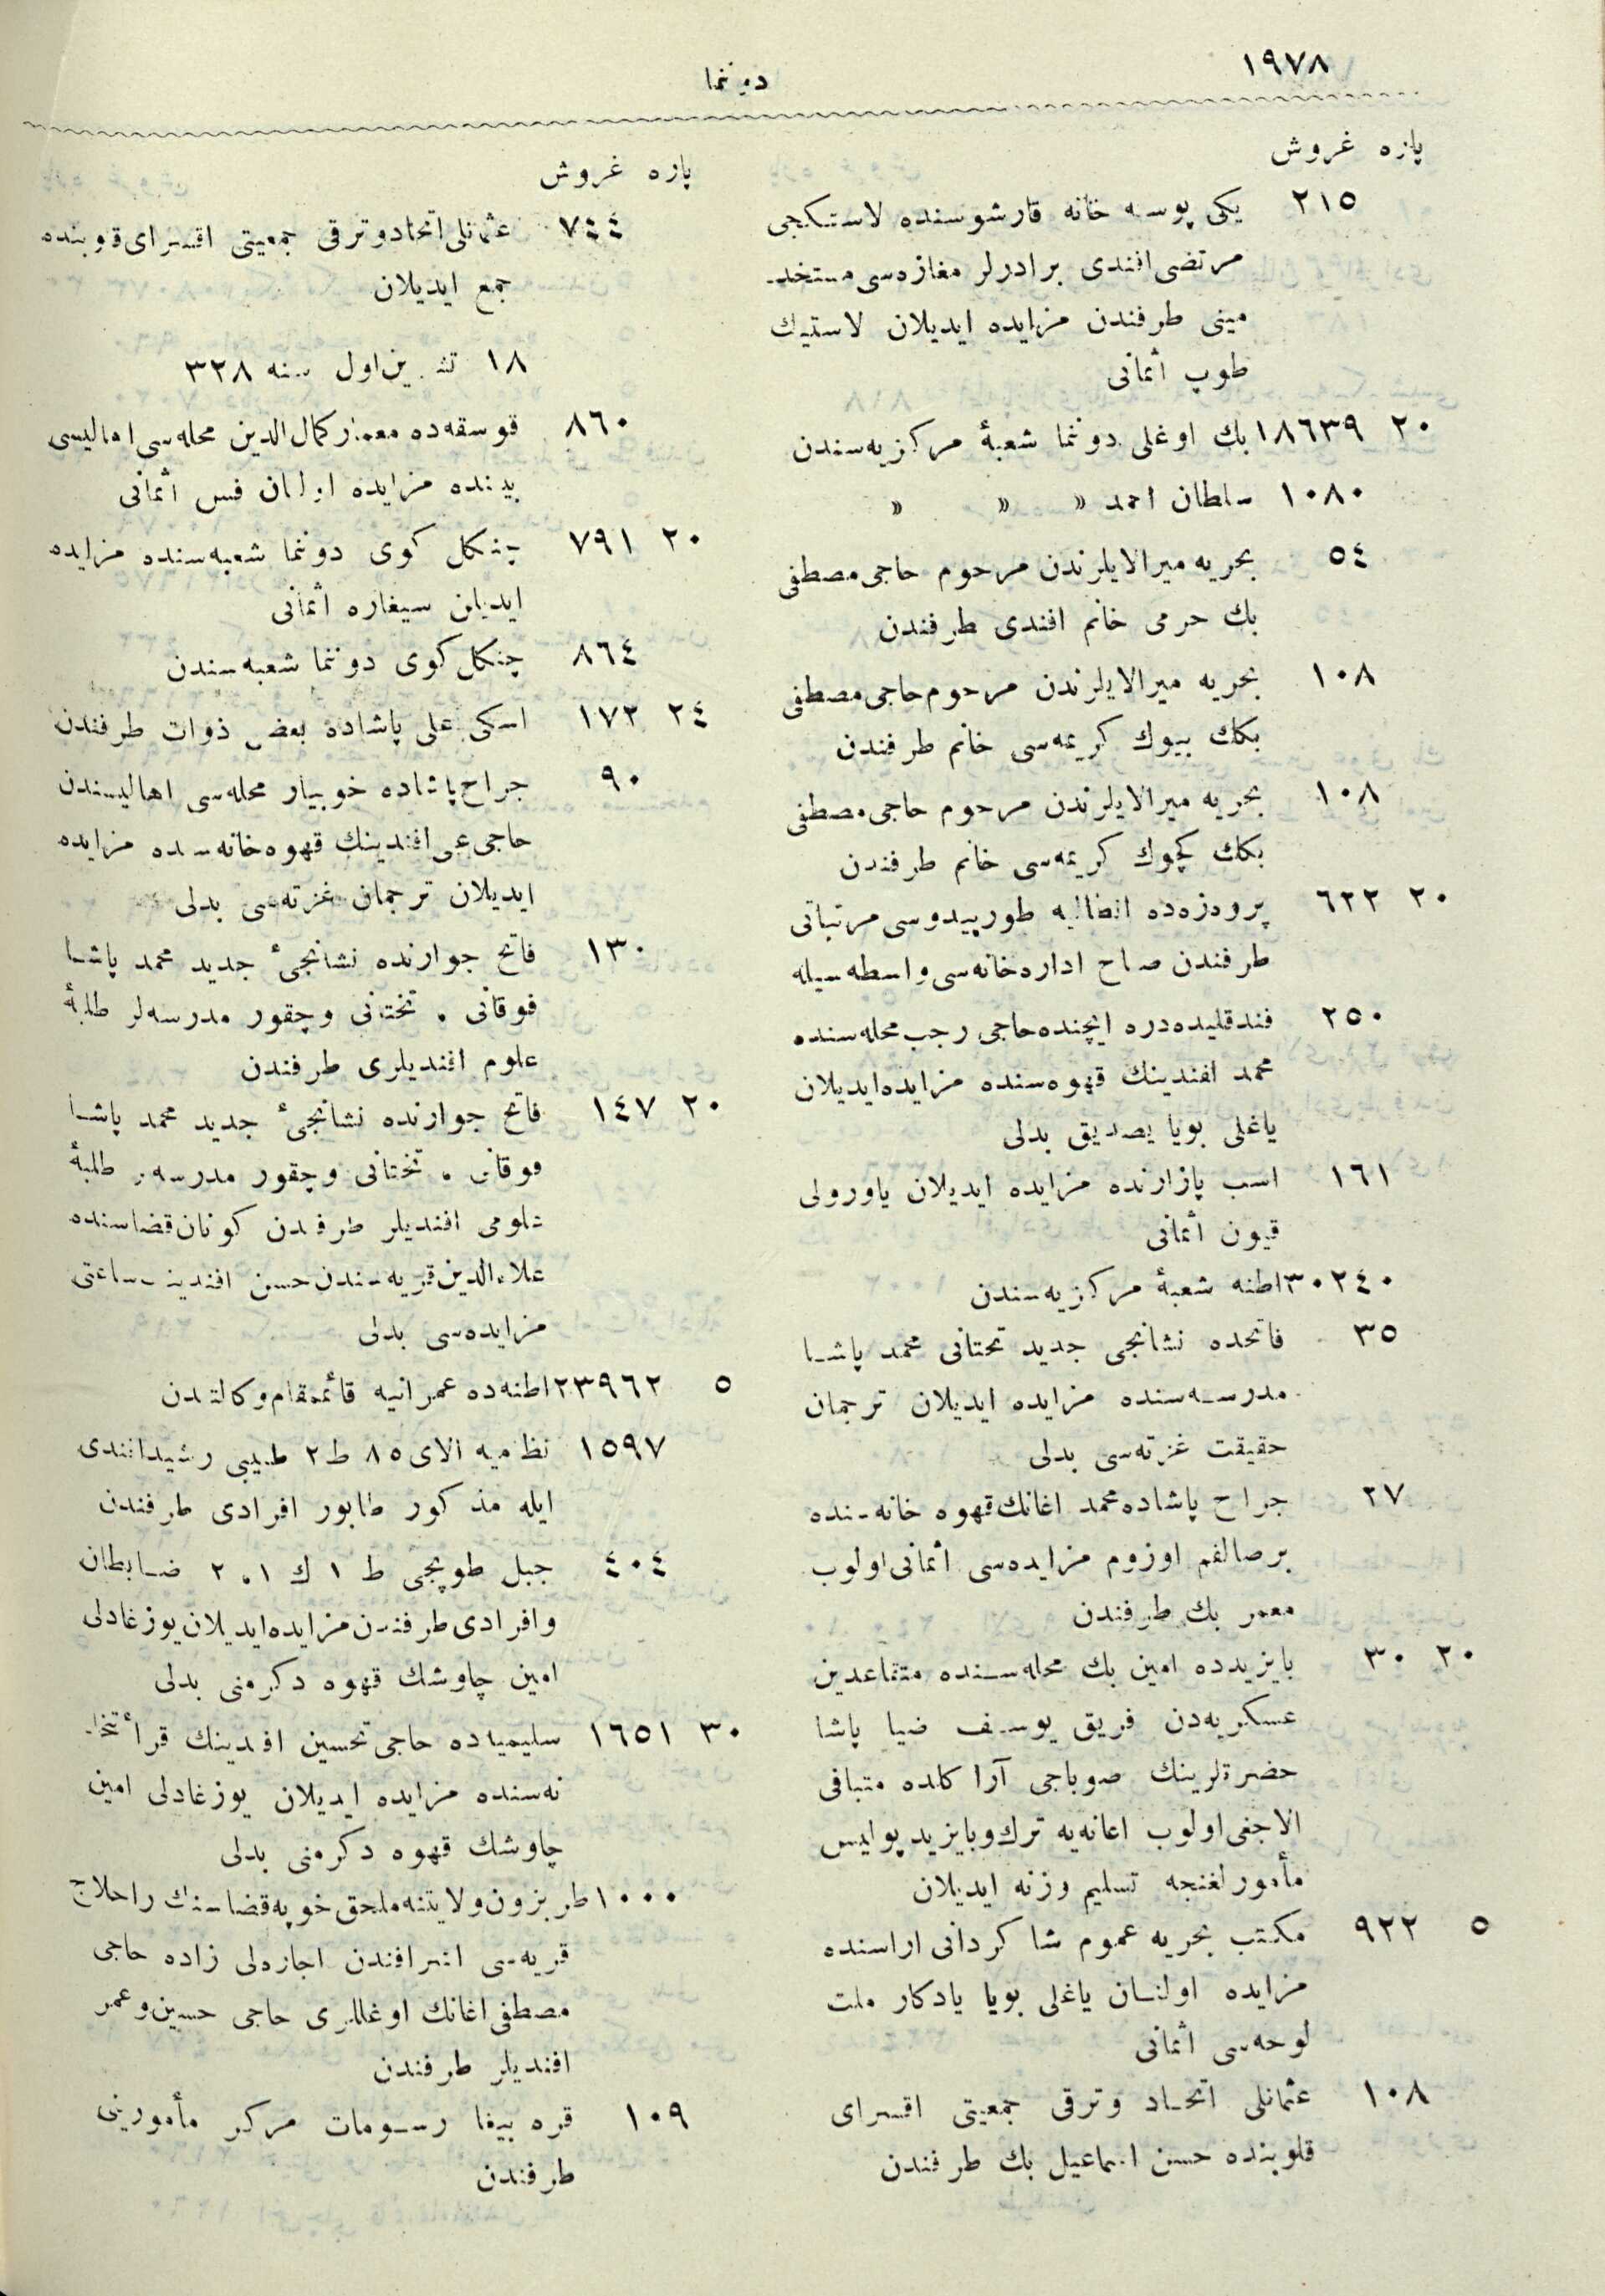 ١٩٧٨
دوننما
پاره غروش
٢١٥ يكى پوسته خانه قارشوسنده لاستكجى
مرتضى افندى برادرلر مغازه‌سى مستخد-
مينى طرفندن مزايده ايديلان لاستيك
طوپ أثمانى
٢٠ ١٨٦٣٩ بك اوغلى دوننما شعبهٔ مركزيه‌سندن
١٠٨٠ سلطان احمد » » »
٥٤ بحريه ميرالايلرندن مرحوم حاجى مصطفى
بك حرمى خانم افندى طرفندن
١٠٨ بحريه ميرالايلرندن مرحوم حاجى مصطفى
بكك بيوك كريمه‌سى خانم طرفندن
١٠٨ بحريه ميرالايلرندن مرحوم حاجى مصطفى
بكك كچوك كريمه‌سى خانم طرفندن
٢٠ ٦٢٢ پروه‌زه‌ده انطاليه طورپيدوسى مرتباتى
طرفندن صباح اداره‌خانه‌سى واسطه‌سيله
٢٥٠ فندقليده‌دره ايچنده حاجى رجب محله‌سنده
محمد افندينك قهوه‌سنده مزايده ايديلان
ياغلى بويا يصديق بدلى
١٦١ اسب پازارنده مزايده ايديلان ياورولى
قيون أثمانى
٣٠٢٤٠ اطنه شعبهٔ مركزيه‌سندن
٣٥ فاتحده نشانجى جديد تحتانى محمد پاشا
مدرسه‌سنده مزايده ايديلان ترجمان
حقيقت غزته‌سى بدلى
٢٧ جراح پاشاده محمد اغانك قهوه خانه‌سنده
برصالقم اوزوم مزايده‌سى أثمانى اولوب
معمر بك طرفندن
٢٠ ٣٠ بايزيدده امين بك محله‌سنده متقاعدين
عسكريه‌دن فريق يوسف ضيا پاشا
حضرتلرينك صوباجى آراكلده متباقى
الاجغى اولوب اعانه‌يه ترك وبايزيد پوليس
مأمورلغنجه تسليم وزنه ايديلان
٥ ٩٢٢ مكتب بحريه عموم شاكردانى اراسنده
مزايده اولنان ياغلى بويا يادكار ملت
لوحه‌سى أثمانى
١٠٨ عثمانلى اتحاد وترقى جمعيتى اقسراى
قلوبنده حسن اسماعيل بك طرفندن
پاره غروش
٧٤٤ عثمانلى اتحاد وترقى جمعيتى اقسراى قلوبنده
جمع ايديلان
١٨ تشرين اول سنه ٣٢٨
٨٦٠ قوسقه‌ده معمار كمال الدين محله‌سى اهاليسى
بيننده مزايده اولنان فس أثمانى
٢٠ ٧٩١ چنكل كوى دوننما شعبه‌سنده مزايده
ايديلن سيغاره أثمانى
٨٦٤ چنكل كوى دوننما شعبه‌سندن
٢٤ ١٧٢ اسكى على پاشاده بعض ذوات طرفندن
٩٠ جراح پاشاده خوبيار محله‌سى اهاليسندن
حاجى على افندينك قهوه خانه‌سنده مزايده
ايديلان ترجمان غزته‌سى بدلى
١٣٠ فاتح جوارنده نشانجىٔ جديد محمد پاشا
فوقانى . تحتانى وچقور مدرسه‌لر طلبهٔ
علوم افنديلرى طرفندن
٢٠ ١٤٧ فاتح جوارنده نشانجىٔ جديد محمد پاشا
فوقانى . تحتانى وچقور مدرسه‌لر طلبهٔ
علومى افنديلر طرفندن كونان قضاسنده
علاءالدين قريه‌سندن حسن افندينك ساعتى
مزايده‌سى بدلى
٥ ٢٣٩٦٢ اطنه‌ده عمرانيه قائمقام وكالتدن
١٥٩٧ نظاميه الاى ٨٥ ط ٢ طبيبى رشيد افندى
ايله مذكور طابور افرادى طرفندن
٤٠٤ جبل طوپجى ط ١ ك ١ . ٢ ضابطان
وافرادى طرفندن مزايده ايديلان يوزغادلى
امين چاوشك قهوه دكرمنى بدلى
٣٠ ١٦٥١ سليميه‌ده حاجى تحسين افندينك قرأتخا-
نه‌سنده مزايده ايديلان يوزغادلى امين
چاوشك قهوه دكرمنى بدلى
١٠٠٠ طربزون ولايتنه ملحق خوپه قضاسنك راحلاج
قريه‌سى اشرافندن اجازه‌لى زاده حاجى
مصطفى اغانك اوغللرى حاجى حسين وعمر
افنديلر طرفندن
١٠٩ قره بيغا رسومات مركز مأمورينى
طرفندن